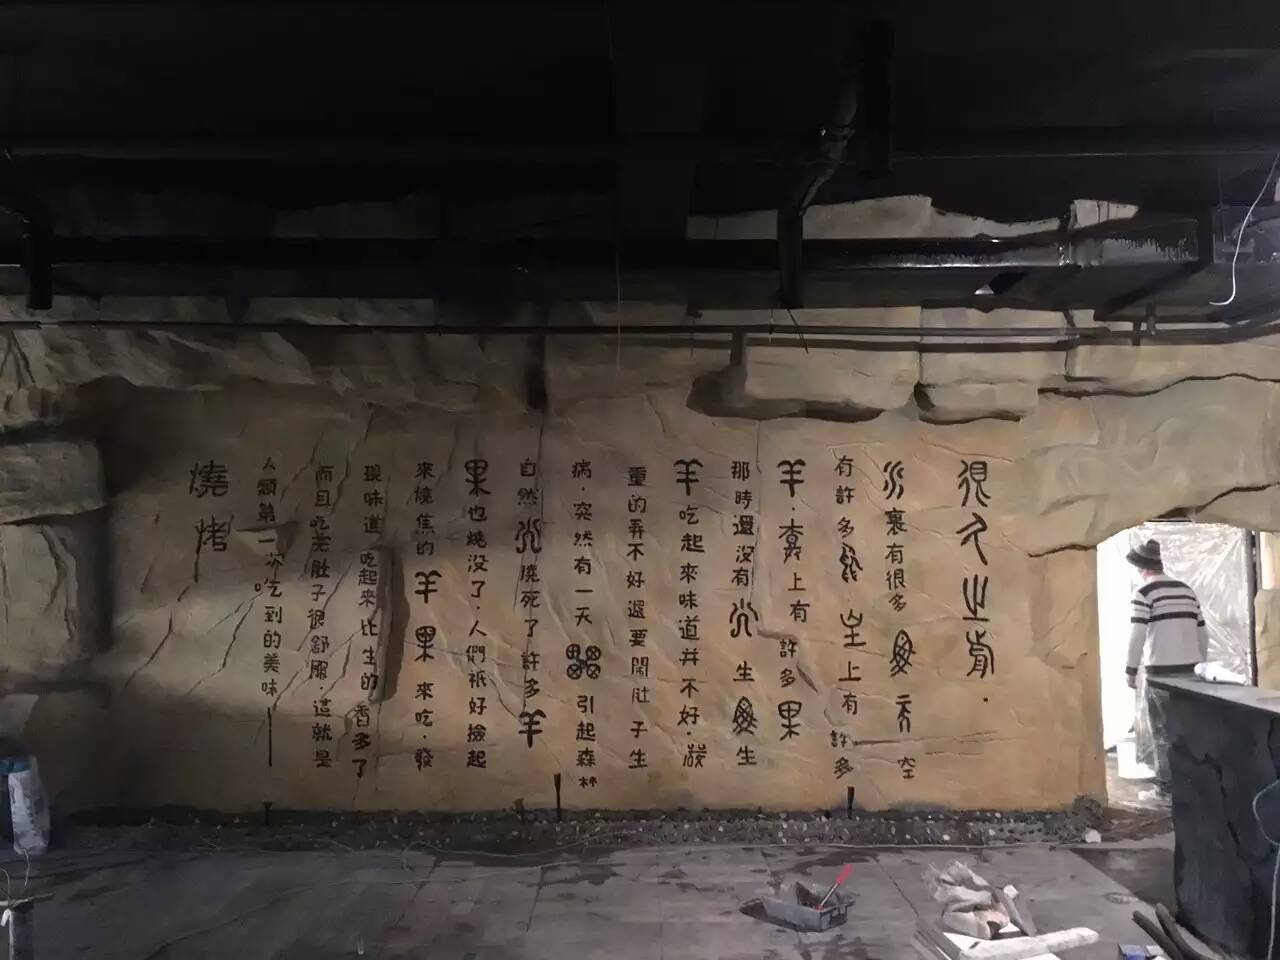 很久之前.
水裏有很多魚天空
有許多鳥山上有許多
羊.木上有許多果
那時還沒有火生魚生
羊吃起來味道并不好.嚴
重的弄不好還要鬧肚子生
病.突然有一天引起森林
自然火燒死了許多羊
果也燒没了.人們祇好撿起
來燒焦的羊果來吃.發
現味道吃起來比生的香多了
而且吃完肚子很舒服.這就是
人類第一次吃到的美味
燒烤